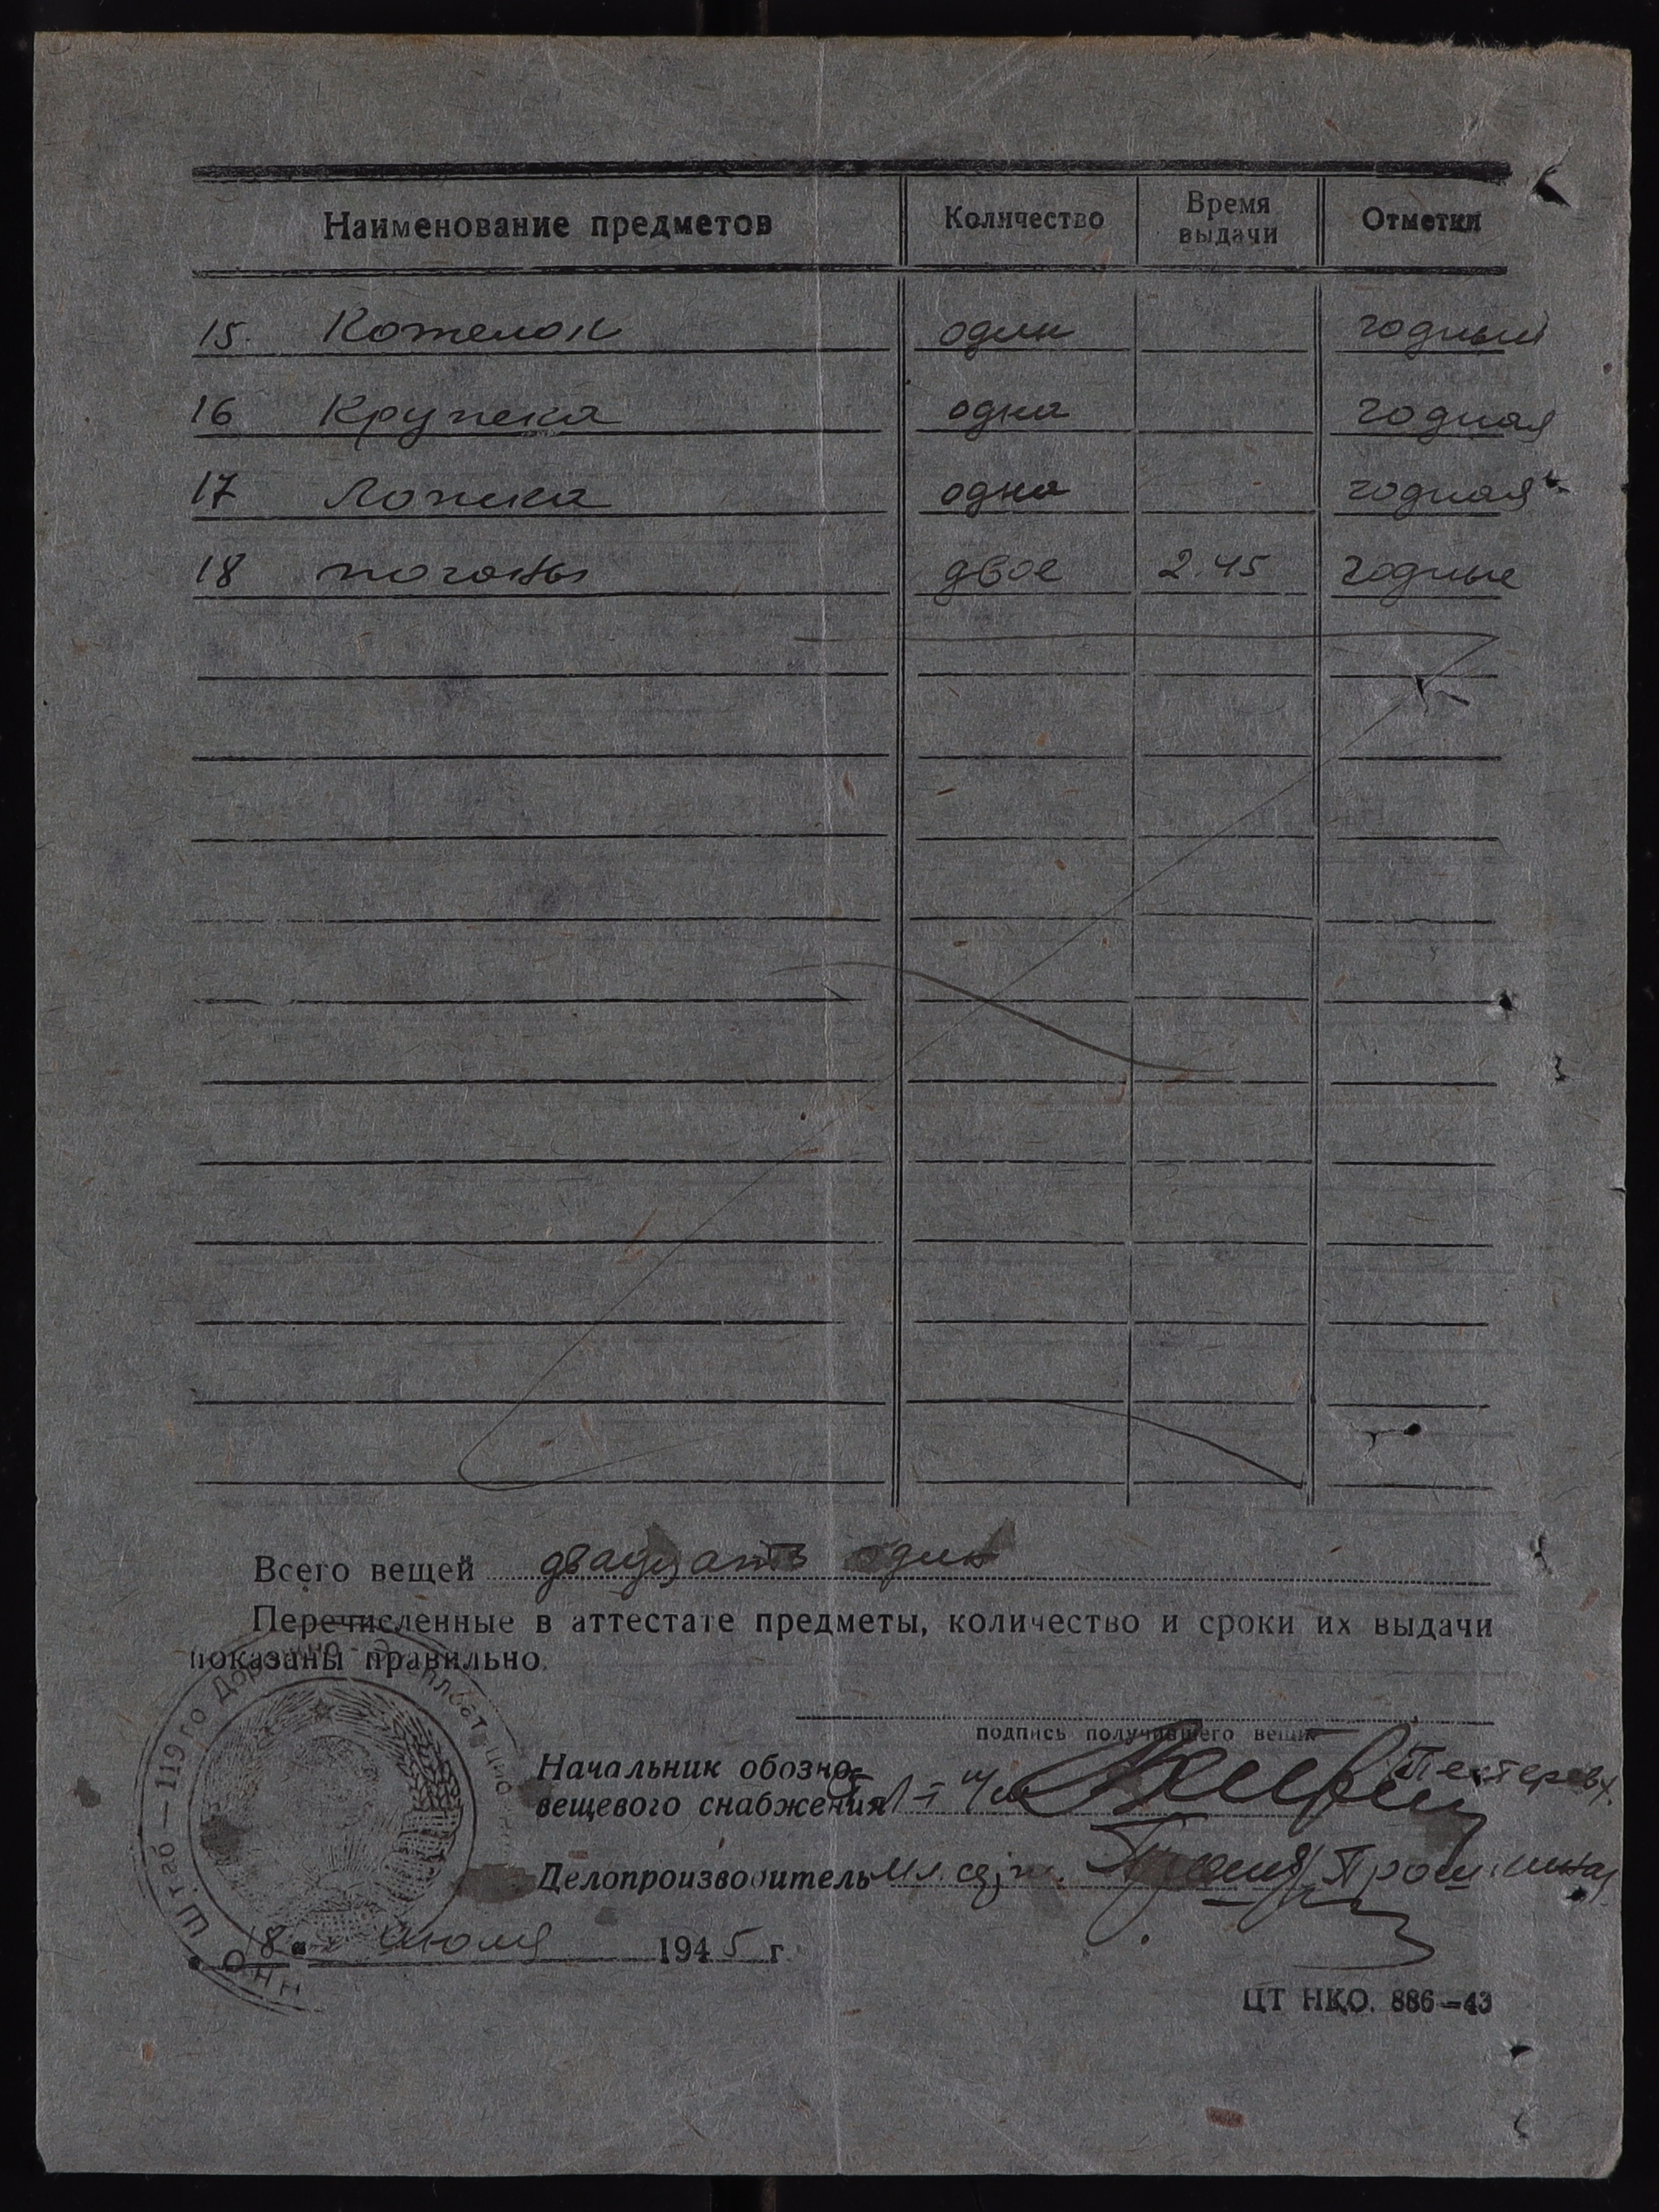 Наименование предметов Количество Время выдачи Отметки
15. Котелок один годный
16 Кружка одна годная
17 Ложка одна годная
18 погоны двое 2.45 годные
Всего вещей двадцать один
Перечисленные в аттестате предметы, количество и сроки их выдачи
показаны правильно.
подпись получившего вещи
Начальник обозно-
вещевого снабжения
Делопроизводитель мл. серж.
18 " июля 1945 г.
ЦТ НКО. 886—43
Штаб — 119го Дорожно-